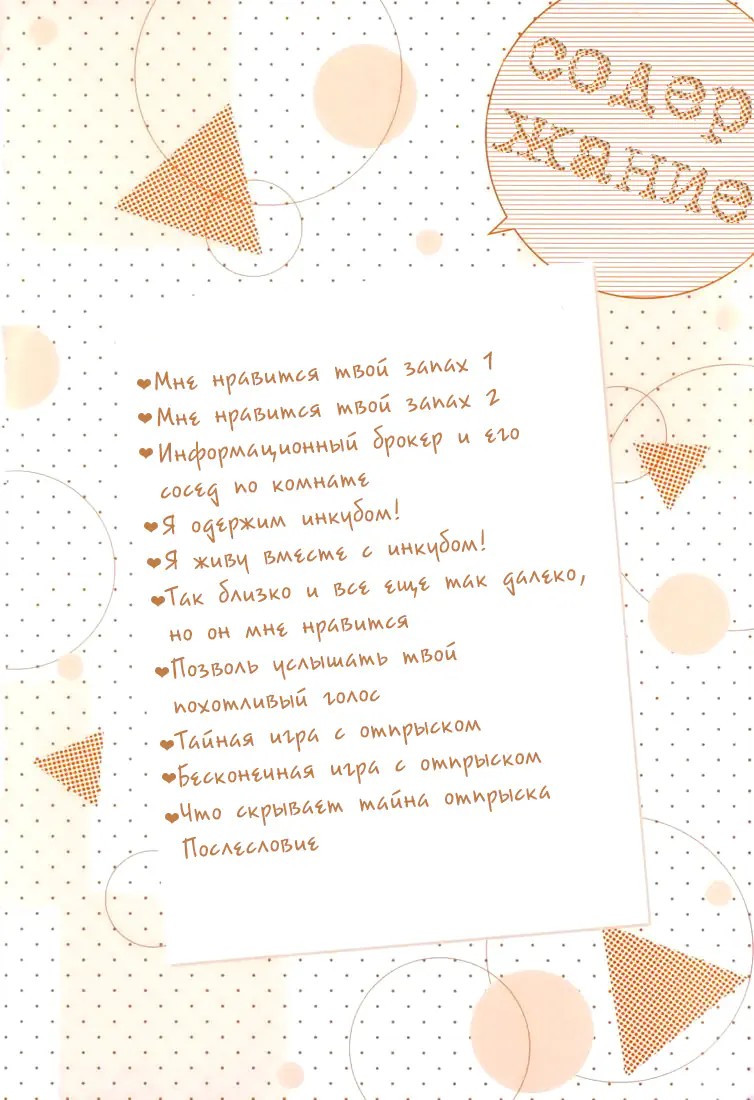 содер
жание
❤Мне нравится твой запах 1
❤Мне нравится твой запах 2
❤Информационный брокер и его
сосед по комнате
❤Я одержим инкубом!
❤Я живу вместе с инкубом!
❤Так близко и все еще так далеко,
но он мне нравится
❤Позволь услышать твой
похотливый голос
❤Тайная игра с отпрыском
❤Бесконечная игра с отпрыском
❤Что скрывает тайна отпрыска
Послесловие